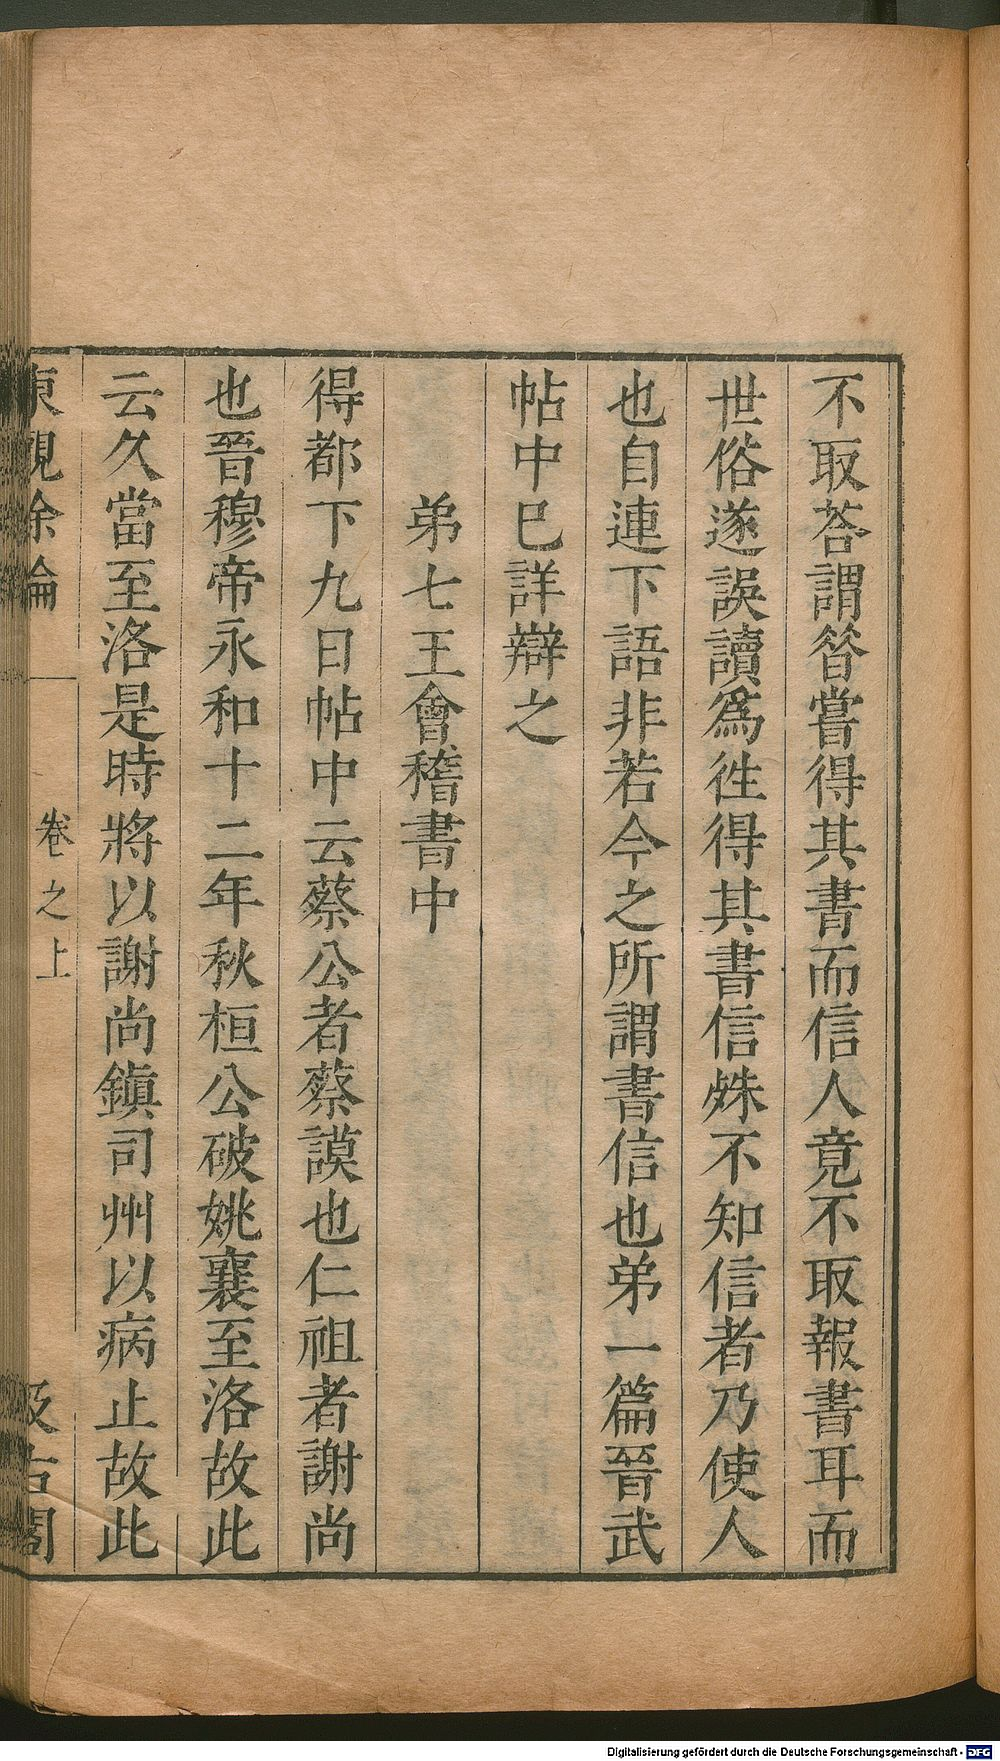 不取荅謂昝嘗得其書而信人竟不取報書耳而
世俗遂誤讀爲徃得其書信殊不知信者乃使人
也自連下語非若今之所謂書信也弟一篇晉武
帖中已詳辯之
弟七王會稽書中
得都下九日帖中云蔡公者蔡謨也仁祖者謝尚
也晉穆帝永和十二年秋桓公破姚襄至洛故此
云久當至洛是時將以謝尚鎭司州以病止故此
東觀餘論
卷之上
汲古閣
Digitalisierung gefördert durch die Deutsche Forschungsgemeinschaft - DFG